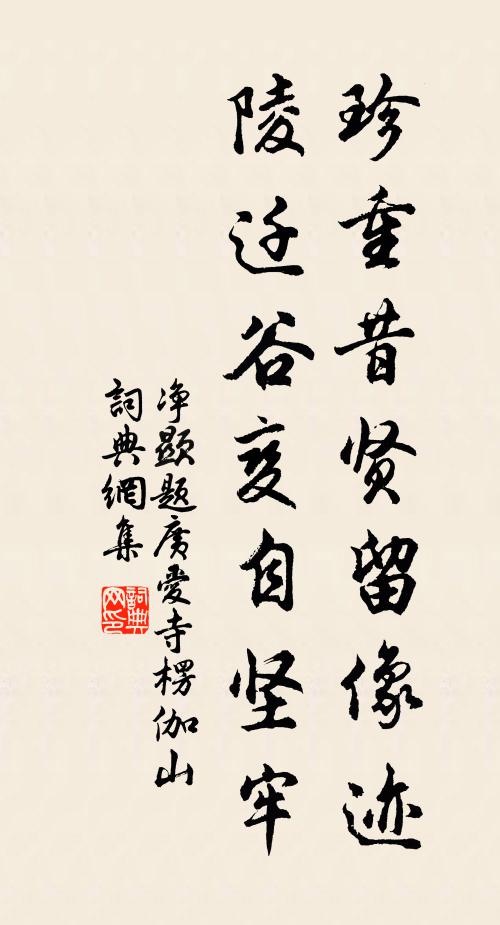 珍重昔贤留像迹
陵迁谷变自坚牢
净显题廣愛寺楞伽山
詞典網集
詞典网印